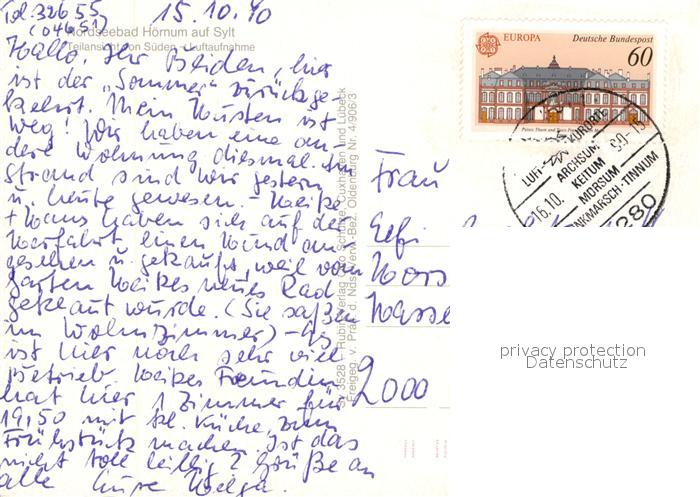 Tel. 32655
(04651)
15.10.90
Nordseebad Hörnum auf Sylt
Teilansicht von Süden - Luftaufnahme
Hallo, Ihr Beiden, hier
ist der "Sommer" zurückge-
kehrt. Mein Husten ist
weg! Wir haben eine an-
dere Wohnung diesmal. Am
Strand sind wir gestern
u. heute gewesen. -
+ Hans haben sich auf der
Herfahrt einen Hund an-
gesehen u. gekauft, weil vom
Garten neues Rad
geklaut wurde. (Sie saßen
im Wohnzimmer) - Es
ist hier noch sehr viel
Betrieb. Freundin
hat hier 1 Zimmer für
19,50 mit kl. Küche, zum
Frühstück machen. Ist das
nicht toll billig? Grüße an
alle Eure Helga.
Sy 3528 - Rubin-Verlag Otto Schütze, Cuxhaven und Lübeck
Freigeg. v. Präs. d. Nds. Verw.-Bez. Oldenburg Nr. 4/906/3
EUROPA Deutsche Bundespost
60
LUFT KURORTE
ARCHSUM
KEITUM
MORSUM
NKMARSCH-TINNUM
16.10. 90-15
280
Frau
Elfi
2000
privacy protection
Datenschutz